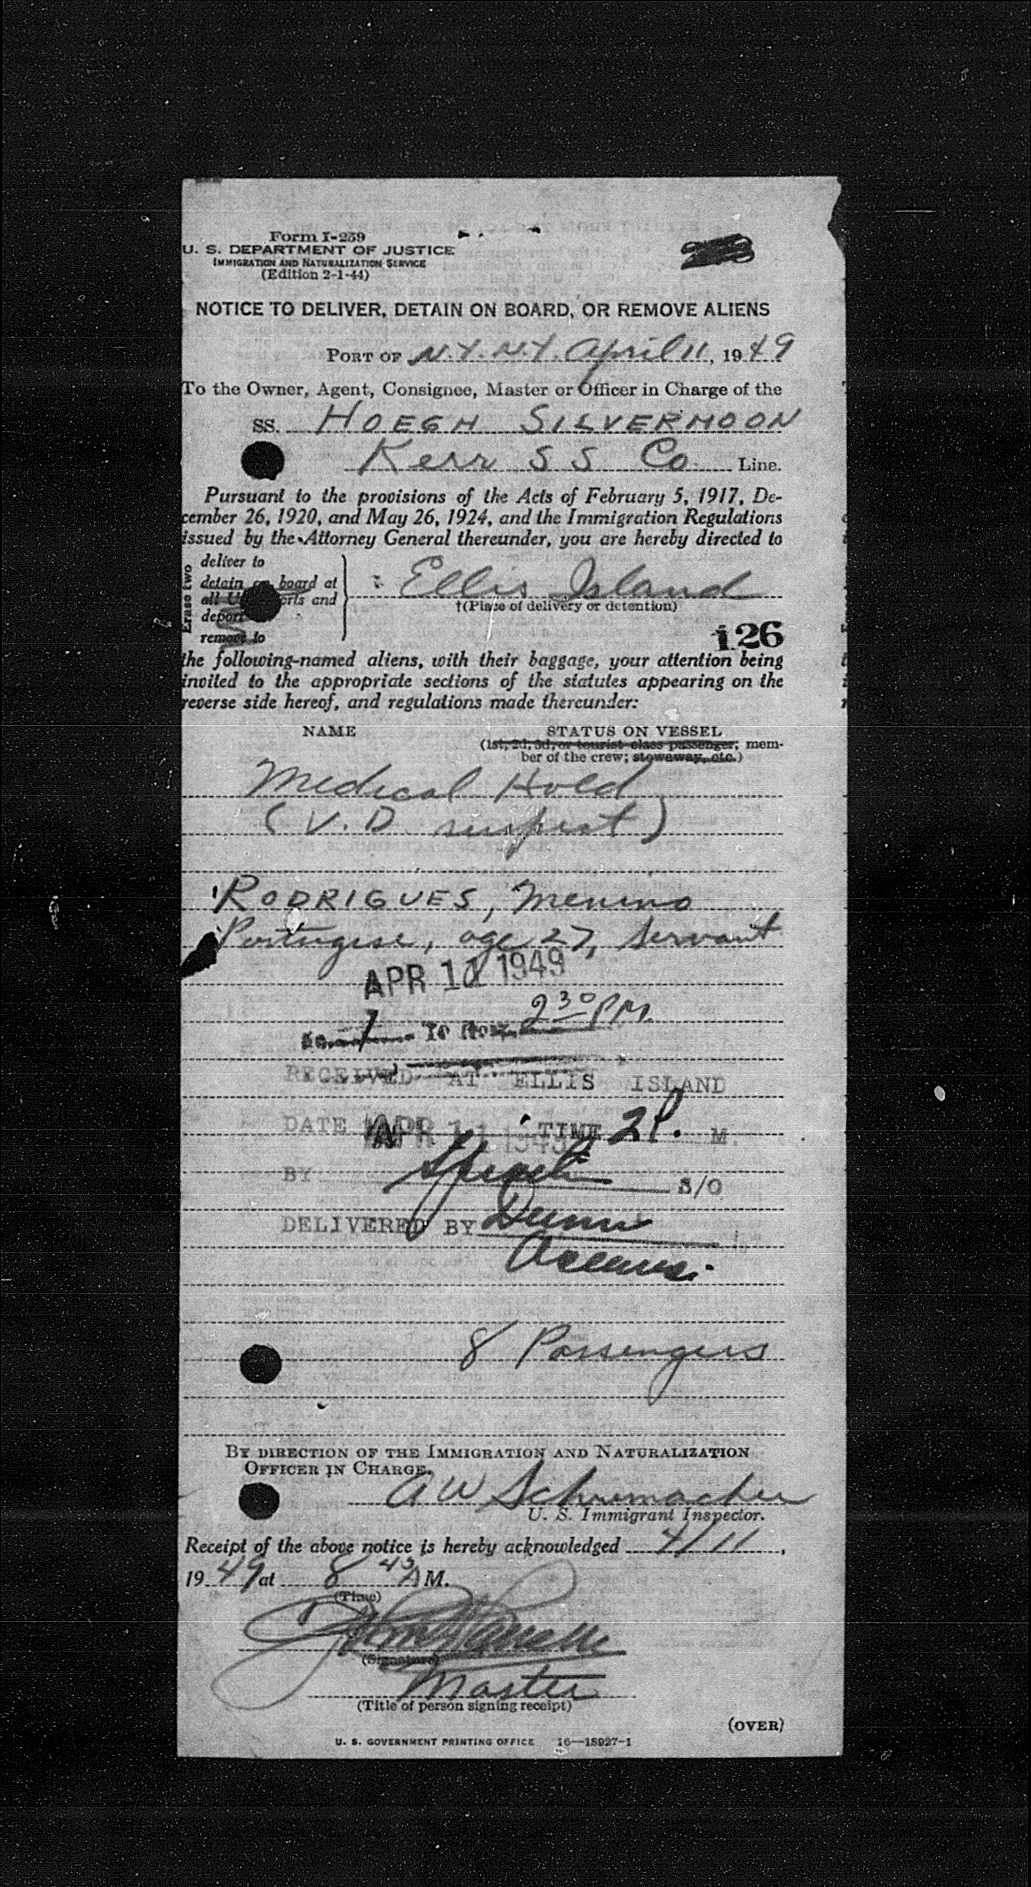 Form I-259
U. S. DEPARTMENT OF JUSTICE
IMMIGRATION AND NATURALIZATION SERVICE
(Edition 2-1-44)
NOTICE TO DELIVER, DETAIN ON BOARD, OR REMOVE ALIENS
PORT OF N.Y. N.Y. April 11, 1949
To the Owner, Agent, Consignee, Master or Officer in Charge of the
SS. HOEGH SILVERMOON
Kerr S S Co. Line.
Pursuant to the provisions of the Acts of February 5, 1917, De-
cember 26, 1920, and May 26, 1924, and the Immigration Regulations
issued by the Attorney General thereunder, you are hereby directed to
Erase two
deliver to
detain on board at
all U ports and
deport
remove to
: Ellis Island
†(Place of delivery or detention)
126
the following-named aliens, with their baggage, your attention being
invited to the appropriate sections of the statutes appearing on the
reverse side hereof, and regulations made thereunder:
NAME STATUS ON VESSEL
(1st, 2d, 3d, or tourist class passenger; mem-
ber of the crew; stowaway, etc.)
Medical Hold
(V.D. suspect)
RODRIGUES, Menino
Portugese, age 27, Servant
APR 11 1949
1 To 230 PM.
RECEIVED AT ELLIS ISLAND
DATE APR 11 1949 TIME 2 P. M.
BY S/O
DELIVERED BY Dunn
8 Passengers
BY DIRECTION OF THE IMMIGRATION AND NATURALIZATION
OFFICER IN CHARGE.
A W Schumacher
U. S. Immigrant Inspector.
Receipt of the above notice is hereby acknowledged 4/11,
1949 at 8 45 A M.
(Time)
(Signature)
Master
(Title of person signing receipt)
(OVER)
U. S. GOVERNMENT PRINTING OFFICE 16—18927-1